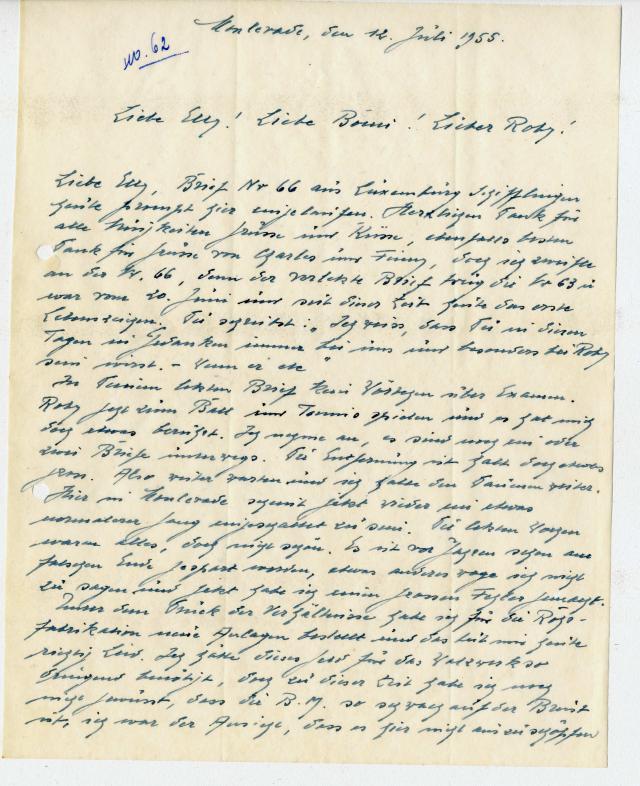 Monlevade, den 12. Juli 1955.
no. 62
Liebe Elly! Liebe Bomi! Lieber Roby!
Liebe Elly, Brief Nr 66 aus Luxemburg Schifflingen
heute prompt hier eingelaufen. Herzlichen Dank für
alle Süssigkeiten Grüsse und Küsse, ebenfalls besten
Dank für Grüsse von Charles und Finny, doch ich zweifle
an der Nr. 66, denn der vorletzte Brief trug die Nr 63 u
war vom 20. Juni und seit dieser Zeit heute das erste
Lebenszeichen. Du schreibst: „Ich weiss, dass Du in diesen
Tagen in Gedanken immer bei uns und besonders bei Roby
sein wirst. - Wenn er etc"
In Deinem letzten Brief kein Wörtchen über Examen.
Roby gege zum Ball und Tennis spielen und es hat mich
doch etwas beruhigt. Ich nehme an, es sind noch ein oder
zwei Briefe unterwegs. Die Entfernung ist halt doch etwas
gross. Also weiter warten und ich halte den Daumen weiter.
Hier in Monlevade scheint jetzt wieder ein etwas
normalerer Gang eingeschaltet zu sein. Die letzten Wochen
waren alles, doch nicht schön. Es ist vor Jahren schon am
falschen Ende gespart worden, etwas anderes wage ich nicht
zu sagen und jetzt habe ich einen grossen Fehler gemacht.
Unter dem Druck der Verhältnisse habe ich für die Rohr-
fabrikation neue Anlagen bestellt und das tut mir heute
richtig Leid. Ich hätte dieses Geld für das Walzwerk so
dringend benötigt, doch zu dieser Zeit habe ich noch
nicht gewusst, dass die B.M. so schwach auf der Brust
ist, ich war der Ansicht, dass es hier nicht auszuschöpfen